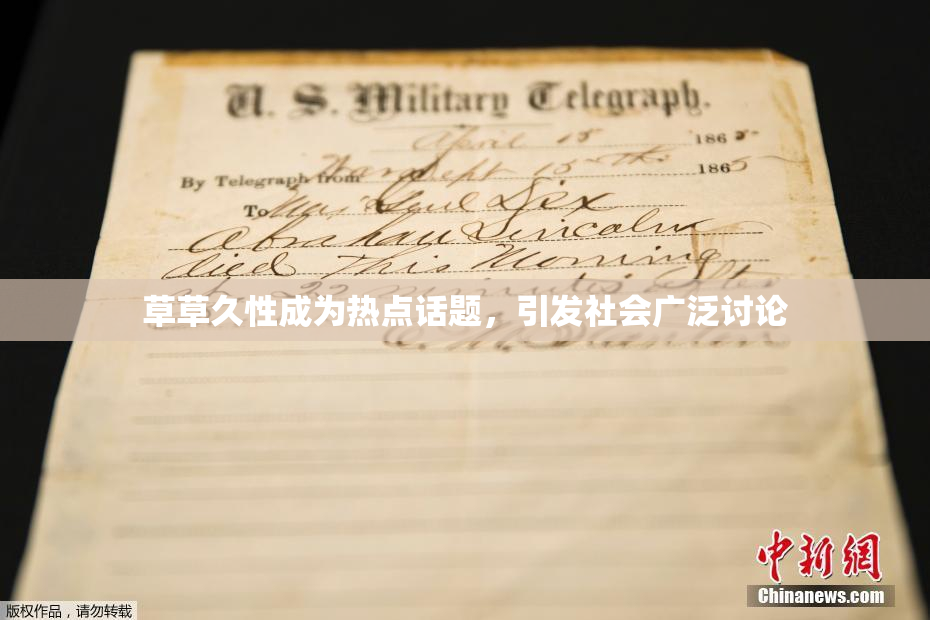 U. S. Military Telegraph.
April 15 1865
By Telegraph from War Dept 15th 1865
To Maj Genl Dix
Abraham Lincoln
died This Morning
at 22 minutes after
草草久性成为热点话题，引发社会广泛讨论
E. M. Stanton
中新網
Chinanews.com
版权作品，请勿转载